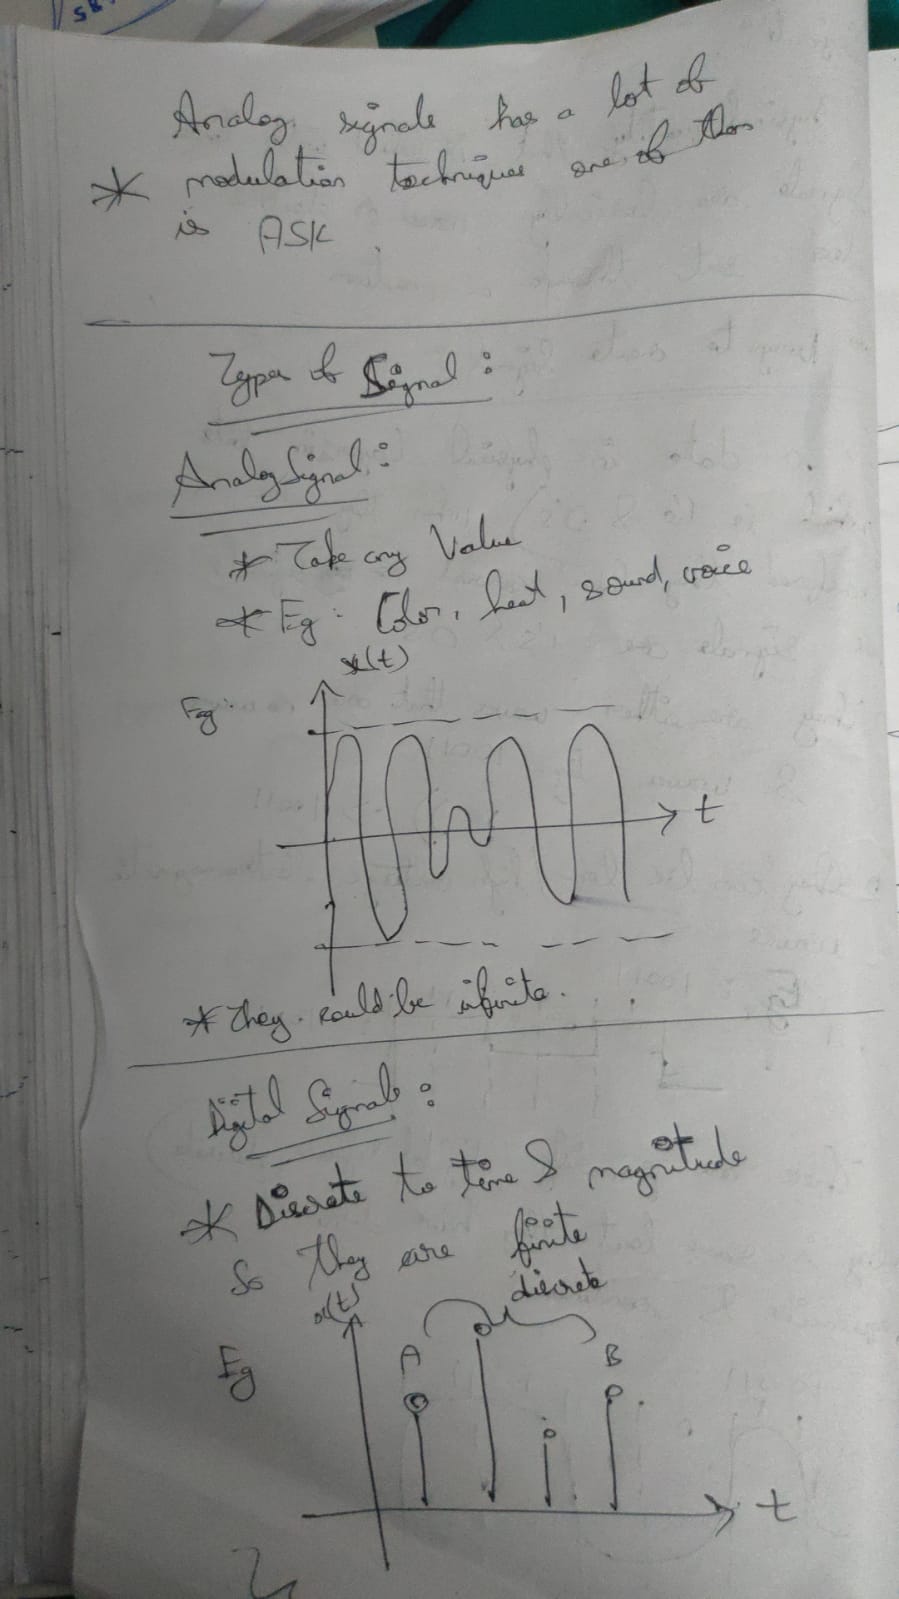 Analog signals has a lot of
* modulation techniques one of them
is ASK
Types of Signal:
Analog Signal:
* Take any Value
* Eg: Color, heat, sound, voice
x(t)
Eg:
t
* They could be infinite.
Digital Signals:
* Discrete to time & magnitude
So They are finite
discrete
x(t)
A
B
Eg
t